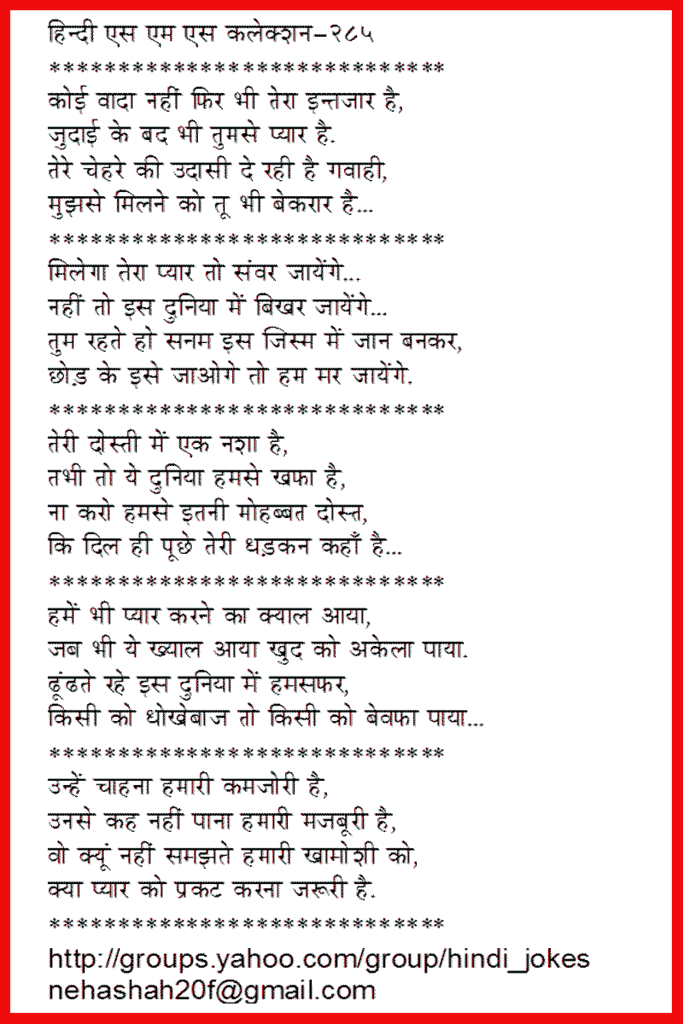 हिन्दी एस एम एस कलेक्शन-२८५
*****************************
कोई वादा नहीं फिर भी तेरा इन्तजार है,
जुदाई के बद भी तुमसे प्यार है.
तेरे चेहरे की उदासी दे रही है गवाही,
मुझसे मिलने को तू भी बेकरार है...
*****************************
मिलेगा तेरा प्यार तो संवर जायेंगे...
नहीं तो इस दुनिया में बिखर जायेंगे...
तुम रहते हो सनम इस जिस्म में जान बनकर,
छोड़ के इसे जाओगे तो हम मर जायेंगे.
*****************************
तेरी दोस्ती में एक नशा है,
तभी तो ये दुनिया हमसे खफा है,
ना करो हमसे इतनी मोहब्बत दोस्त,
कि दिल ही पूछे तेरी धड़कन कहाँ है...
*****************************
हमें भी प्यार करने का क्याल आया,
जब भी ये ख्याल आया खुद को अकेला पाया.
ढूंढते रहे इस दुनिया में हमसफर,
किसी को धोखेबाज तो किसी को बेवफा पाया...
*****************************
उन्हें चाहना हमारी कमजोरी है,
उनसे कह नहीं पाना हमारी मजबूरी है,
वो क्यूं नहीं समझते हमारी खामोशी को,
क्या प्यार को प्रकट करना जरूरी है.
*****************************
http://groups.yahoo.com/group/hindi_jokes
nehashah20f@gmail.com